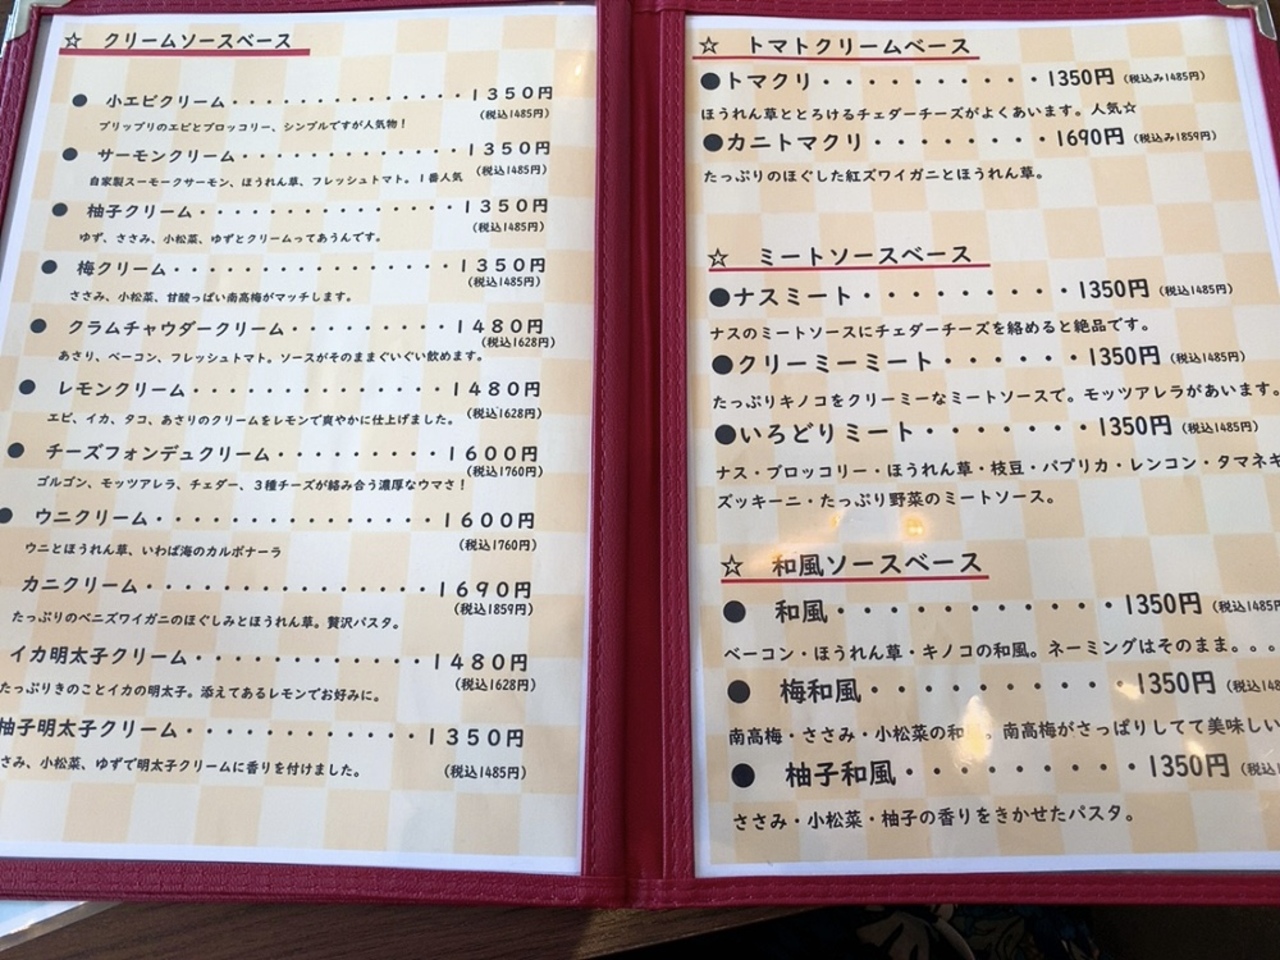 ☆ クリームソースベース
● 小エビクリーム・・・・・・・・・・・・・１３５０円
(税込1485円)
プリップリのエビとブロッコリー、シンプルですが人気物！
● サーモンクリーム・・・・・・・・・・・・・１３５０円
(税込1485円)
自家製スーモークサーモン、ほうれん草、フレッシュトマト。１番人気
● 柚子クリーム・・・・・・・・・・・・・・１３５０円
(税込1485円)
ゆず、ささみ、小松菜、ゆずとクリームってあうんです。
● 梅クリーム・・・・・・・・・・・・・・・１３５０円
(税込1485円)
ささみ、小松菜、甘酸っぱい南高梅がマッチします。
● クラムチャウダークリーム・・・・・・・・・１４８０円
(税込1628円)
あさり、ベーコン、フレッシュトマト。ソースがそのままぐいぐい飲めます。
● レモンクリーム・・・・・・・・・・・・・１４８０円
(税込1628円)
エビ、イカ、タコ、あさりのクリームをレモンで爽やかに仕上げました。
● チーズフォンデュクリーム・・・・・・・・・１６００円
(税込1760円)
ゴルゴン、モッツアレラ、チェダー、３種チーズが絡み合う濃厚なウマさ！
● ウニクリーム・・・・・・・・・・・・・・・１６００円
(税込1760円)
ウニとほうれん草、いわば海のカルボナーラ
カニクリーム・・・・・・・・・・・・・・・１６９０円
(税込1859円)
たっぷりのベニズワイガニのほぐしみとほうれん草。贅沢パスタ。
イカ明太子クリーム・・・・・・・・・・・・１４８０円
(税込1628円)
たっぷりきのことイカの明太子。添えてあるレモンでお好みに。
柚子明太子クリーム・・・・・・・・・・・・１３５０円
(税込1485円)
さみ、小松菜、ゆずで明太子クリームに香りを付けました。
☆ トマトクリームベース
●トマクリ・・・・・・・・・・1350円 (税込み1485円)
ほうれん草ととろけるチェダーチーズがよくあいます。人気☆
●カニトマクリ・・・・・・・・1690円 (税込み1859円)
たっぷりのほぐした紅ズワイガニとほうれん草。
☆ ミートソースベース
●ナスミート・・・・・・・・・1350円 (税込1485円)
ナスのミートソースにチェダーチーズを絡めると絶品です。
●クリーミーミート・・・・・・1350円 (税込1485円)
たっぷりキノコをクリーミーなミートソースで。モッツアレラがあいます。
●いろどりミート・・・・・・・1350円 (税込1485円)
ナス・ブロッコリー・ほうれん草・枝豆・パプリカ・レンコン・タマネギ
ズッキーニ・たっぷり野菜のミートソース。
☆ 和風ソースベース
● 和風・・・・・・・・・・・1350円 (税込1485円
ベーコン・ほうれん草・キノコの和風。ネーミングはそのまま。。。
● 梅和風・・・・・・・・・・1350円 (税込148
南高梅・ささみ・小松菜の和 。南高梅がさっぱりしてて美味しい
● 柚子和風・・・・・・・・・1350円 (税込1
ささみ・小松菜・柚子の香りをきかせたパスタ。